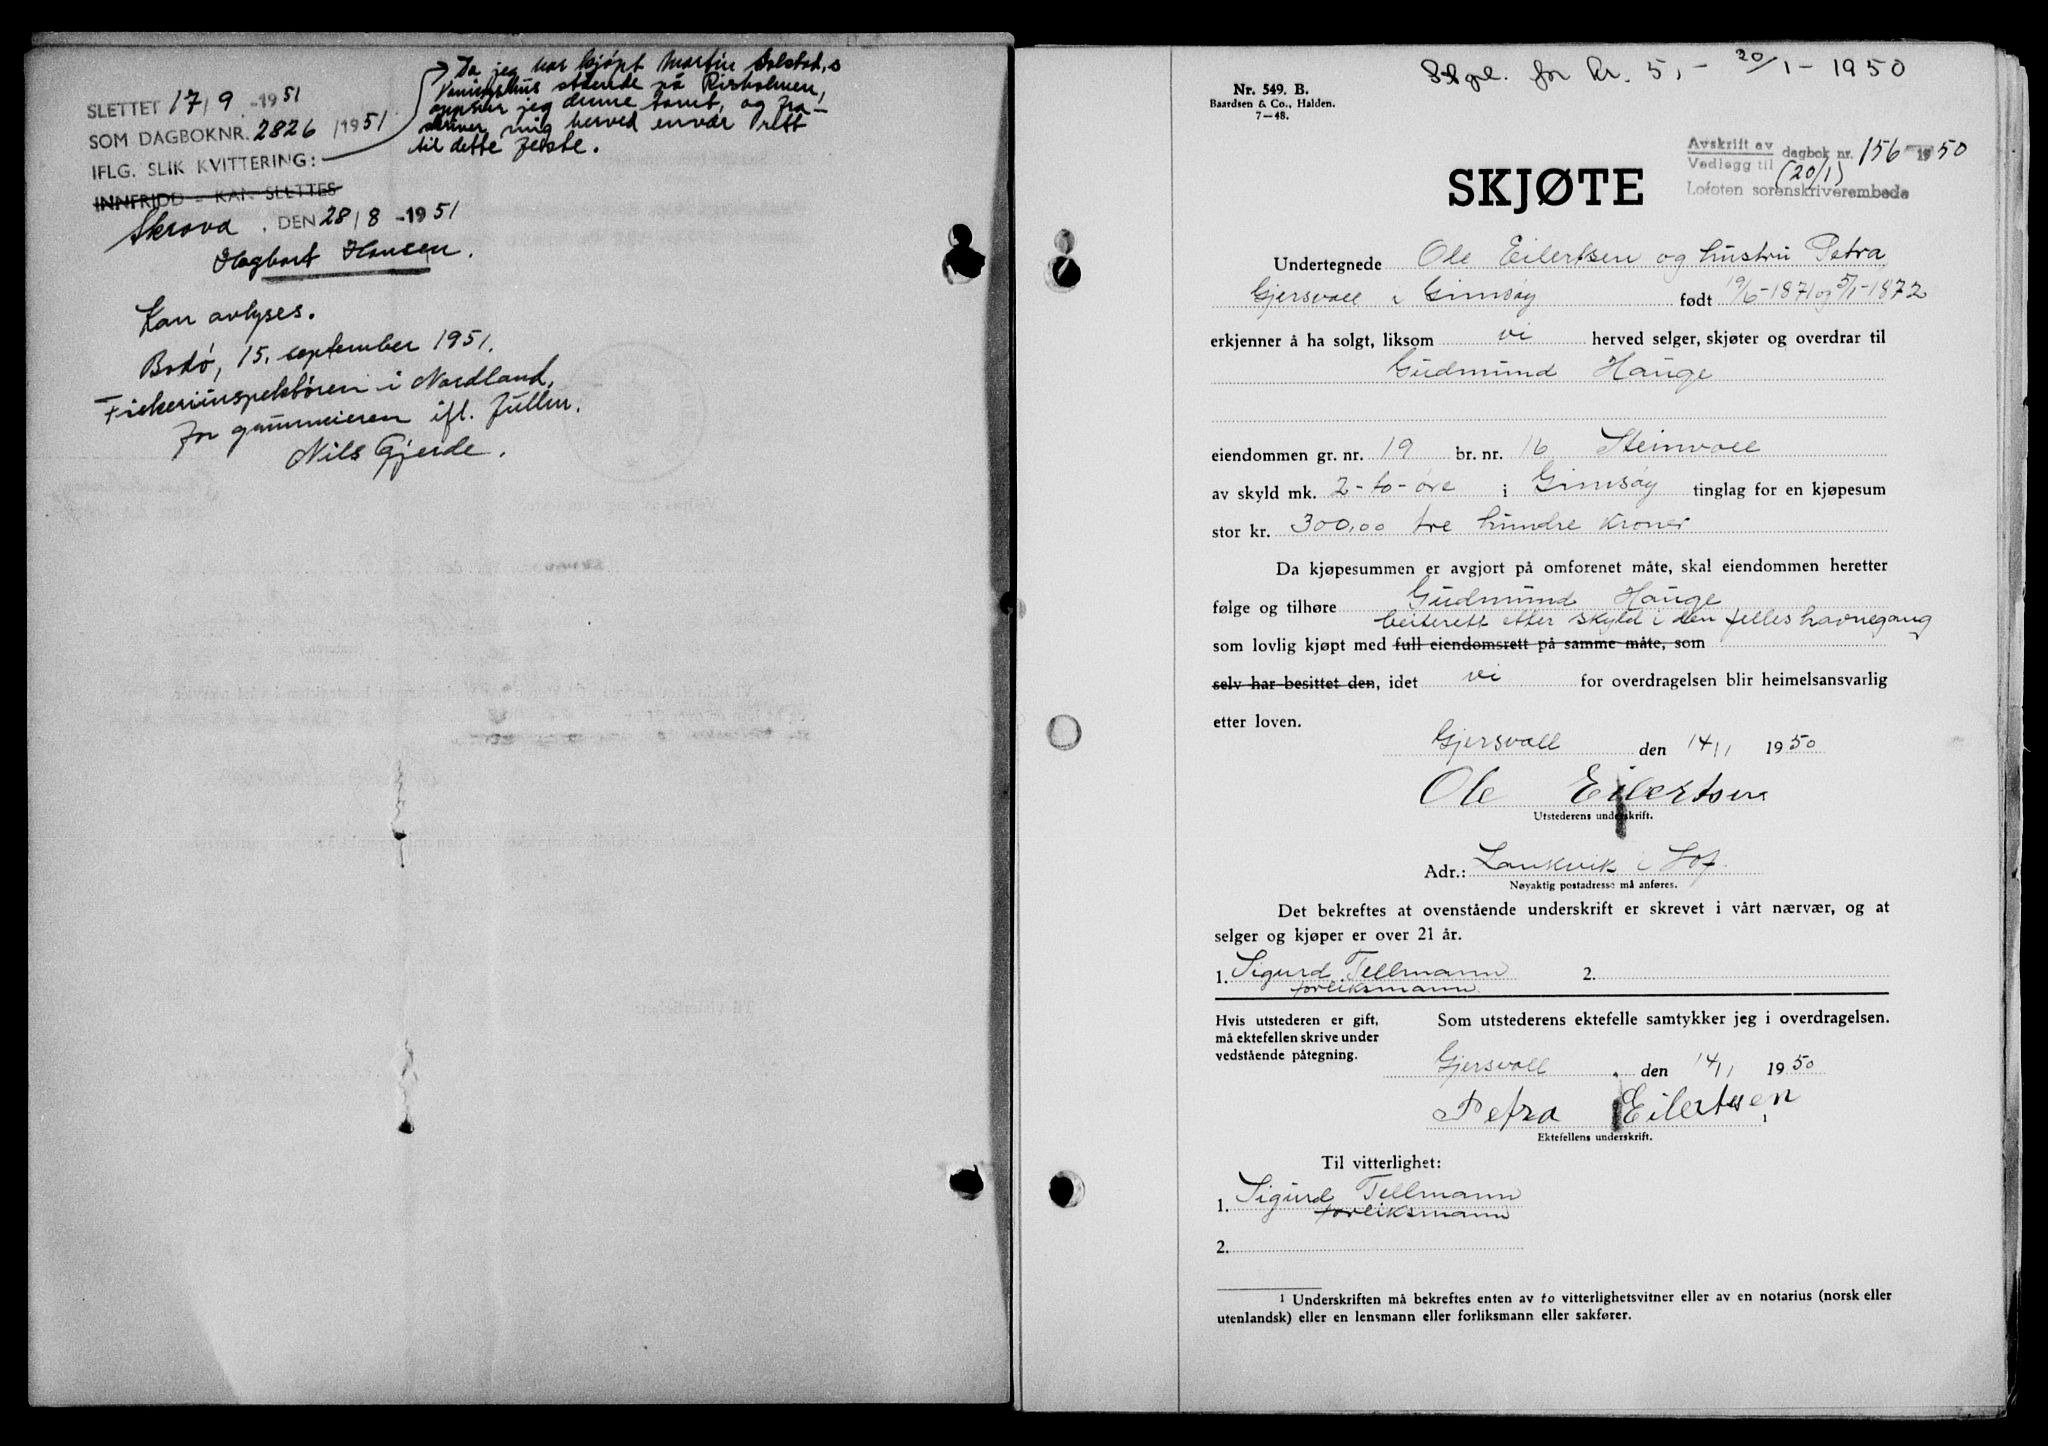 SLETTET 17/9 -1951
SOM DAGBOKNR. 2826 /1951
IFLG. SLIK KVITTERING:
INNFRIDD - KAN SLETTES
Skrova, DEN 28/8 -1951
Hagbart Hansen.
Da jeg har kjøpt Martin Solstad,s
Våningshus stående på Risholmen,
oppsier jeg denne tomt, og fra-
skriver mig herved envær rett
til dette feste.
Kan avlyses.
Bodø, 15. september 1951.
Fiskeriinspektøren i Nordland,
for grunneieren ifl. fullm.
Nils Gjerde.
Stpl. for kr. 5,- 20/1-1950
Nr. 549. B.
Baardsen & Co., Halden.
7—48.
Avskrift av
Vedlegg til dagbok nr. 156 1950
(20/1)
Lofoten sorenskriverembede
SKJØTE
Undertegnede Ole Eilertsen og hustru Petra
Gjersvoll i Gimsøy født 19/6-1871 og 5/1-1872
erkjenner å ha solgt, liksom vi herved selger, skjøter og overdrar til
Gudmund Hauge
eiendommen gr. nr. 19 br. nr. 16 Steinvoll
av skyld mk. 2-to-øre i Gimsøy tinglag for en kjøpesum
stor kr. 300,00 tre hundre kroner
Da kjøpesummen er avgjort på omforenet måte, skal eiendommen heretter
følge og tilhøre Gudmund Hauge
beiterett etter skyld i den felles havnegang
som lovlig kjøpt med full eiendomsrett på samme måte, som
selv har besittet den, idet vi for overdragelsen blir heimelsansvarlig
etter loven.
Gjersvoll den 14/1 1950
Ole Eilertsen
Utstederens underskrift.
Adr.: Laukvik i Lof.
Nøyaktig postadresse må anføres.
Det bekreftes at ovenstående underskrift er skrevet i vårt nærvær, og at
selger og kjøper er over 21 år.
1. Sigurd Tellmann 2.
forliksmann.
Hvis utstederen er gift,
må ektefellen skrive under
vedstående påtegning.
Som utstederens ektefelle samtykker jeg i overdragelsen.
Gjersvoll, den 14/1 1950
Petra Eilertsen
1
Ektefellens underskrift.
Til vitterlighet:
1. Sigurd Tellmann
forliksmann
2.
1 Underskriften må bekreftes enten av to vitterlighetsvitner eller av en notarius (norsk eller
utenlandsk) eller en lensmann eller forliksmann eller sakfører.